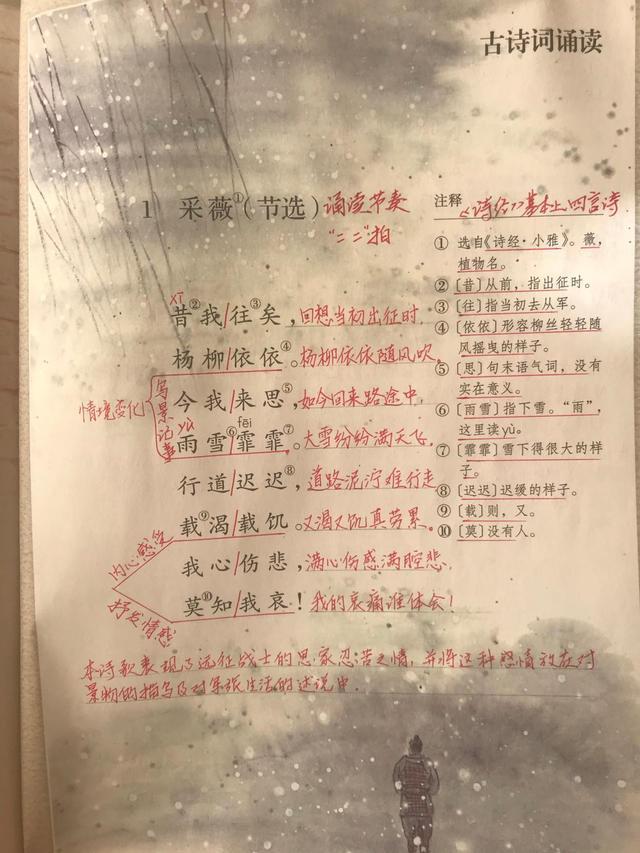 古诗词诵读
1 采薇①(节选) 诵读节奏
"二二"拍
xī
昔②我/往③矣,回想当初出征时,
杨柳/依依④。杨柳依依随风吹,
今我/来思⑤,如今回来路途中,
yù fēi
雨雪⑥/霏霏⑦。大雪纷纷满天飞,
行道/迟迟⑧,道路泥泞难行走
载⑨渴/载饥。又渴又饥真劳累。
我心/伤悲,满心伤感满腔悲,
莫⑩知/我哀!我的哀痛谁体会!
情境变化
写景记事
内心感受
抒发情感
注释 《诗经》基本上四言诗
① 选自《诗经·小雅》。薇,
植物名。
②〔昔〕从前,指出征时。
③〔往〕指当初去从军。
④〔依依〕形容柳丝轻轻随
风摇曳的样子。
⑤〔思〕句末语气词,没有
实在意义。
⑥〔雨雪〕指下雪。“雨”,
这里读yù。
⑦〔霏霏〕雪下得很大的样
子。
⑧〔迟迟〕迟缓的样子。
⑨〔载〕则,又。
⑩〔莫〕没有人。
本诗歌表现了远征战士的思家忍苦之情,并将这种感情放在对
景物的描写及对军旅生活的述说中.